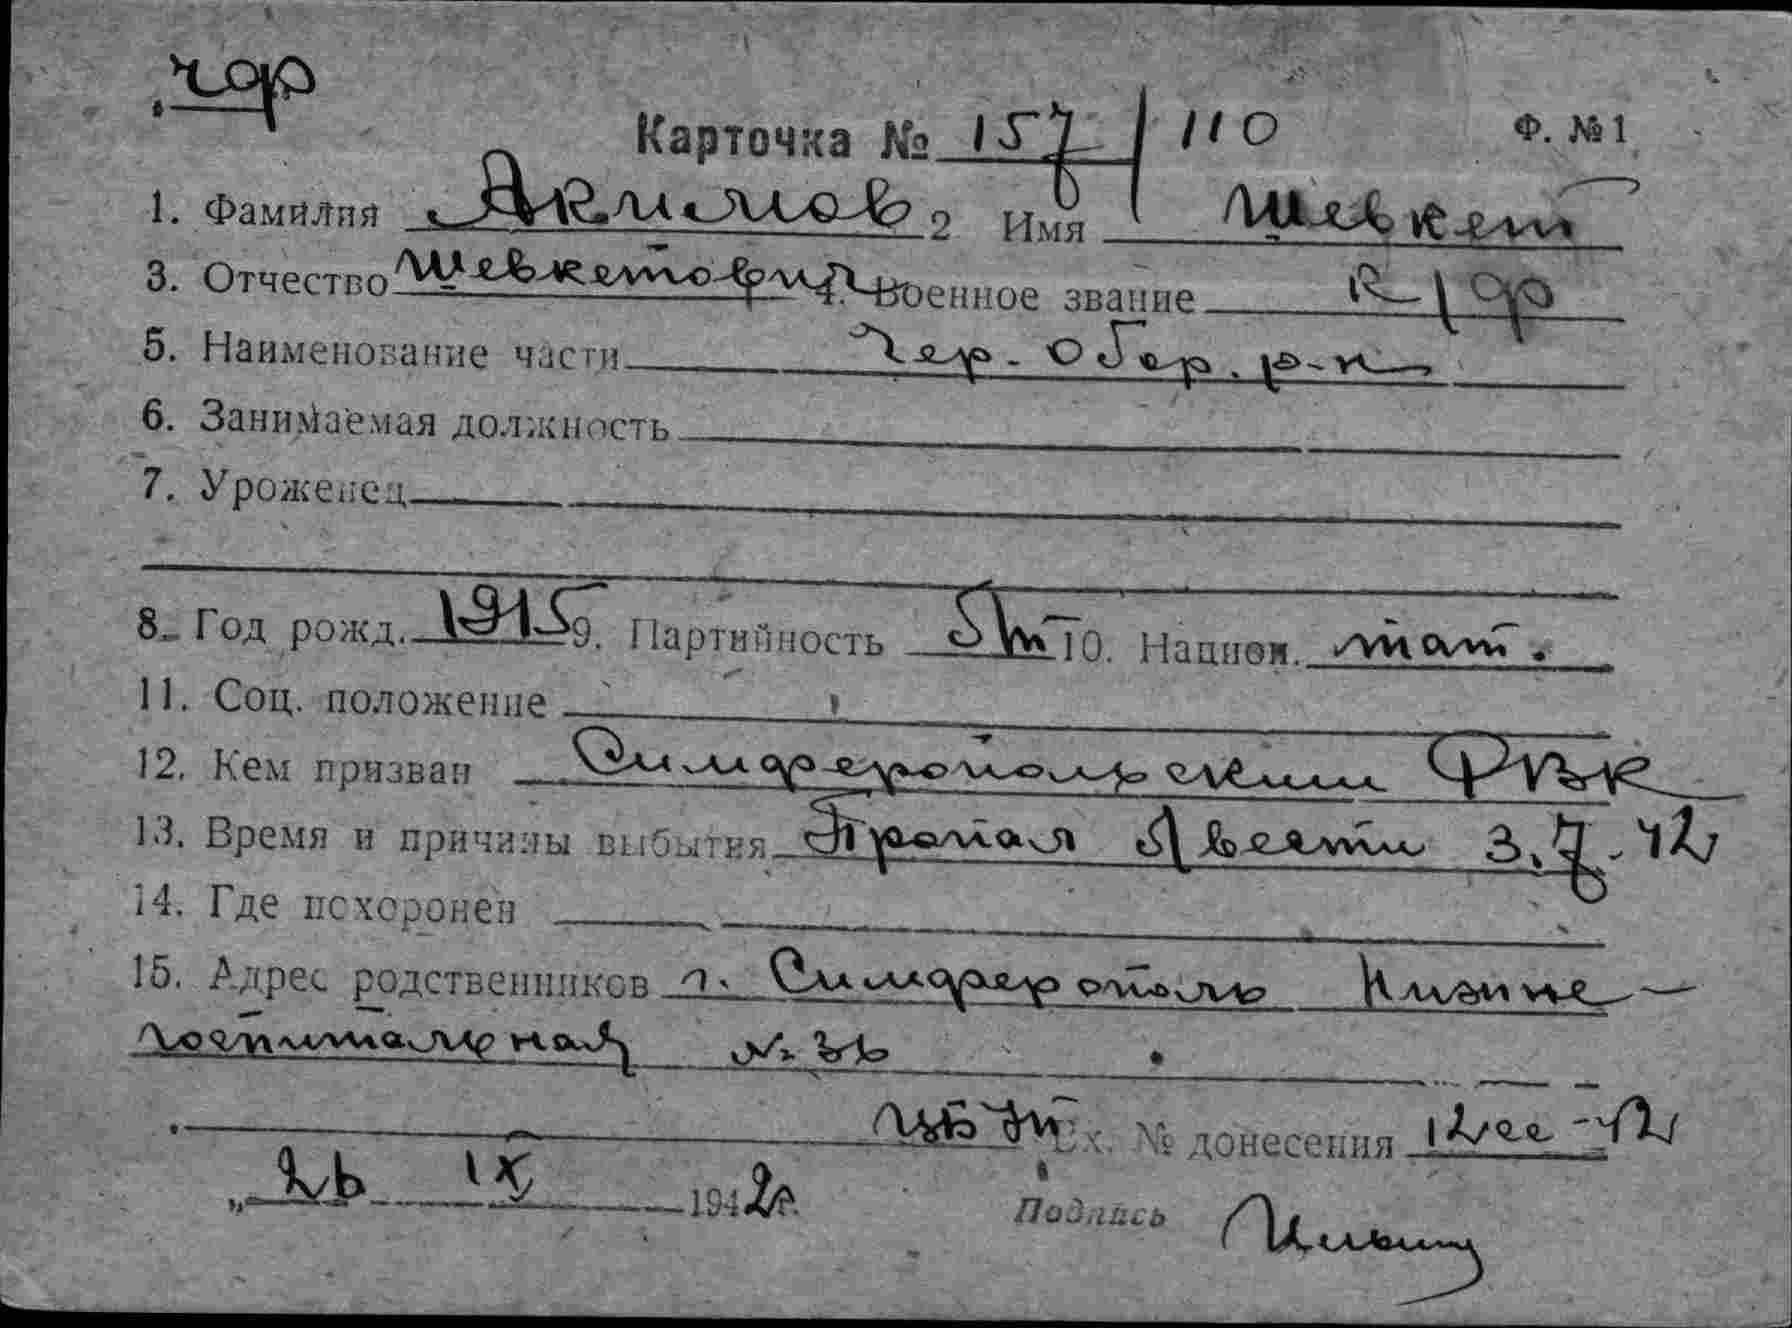 чф
Карточка № 157/110 Ф. №1
1. Фамилия Акимов 2 Имя Шевкет
3. Отчество Шевкетович 4. Военное звание к/ф
5. Наименование части Чер. обор. р-н
6. Занимаемая должность
7. Уроженец
8. Год рожд. 1915 9. Партийность б/п 10. Национ. тат.
11. Соц. положение
12. Кем призван Симферопольским РВК
13. Время и причины выбытия Пропал без вести 3.7.42
14. Где похоронен
15. Адрес родственников г. Симферополь Нижне-
госпитальная № 26
Вх. № донесения 12сс-42
„26 IX 1942г.
Подпись